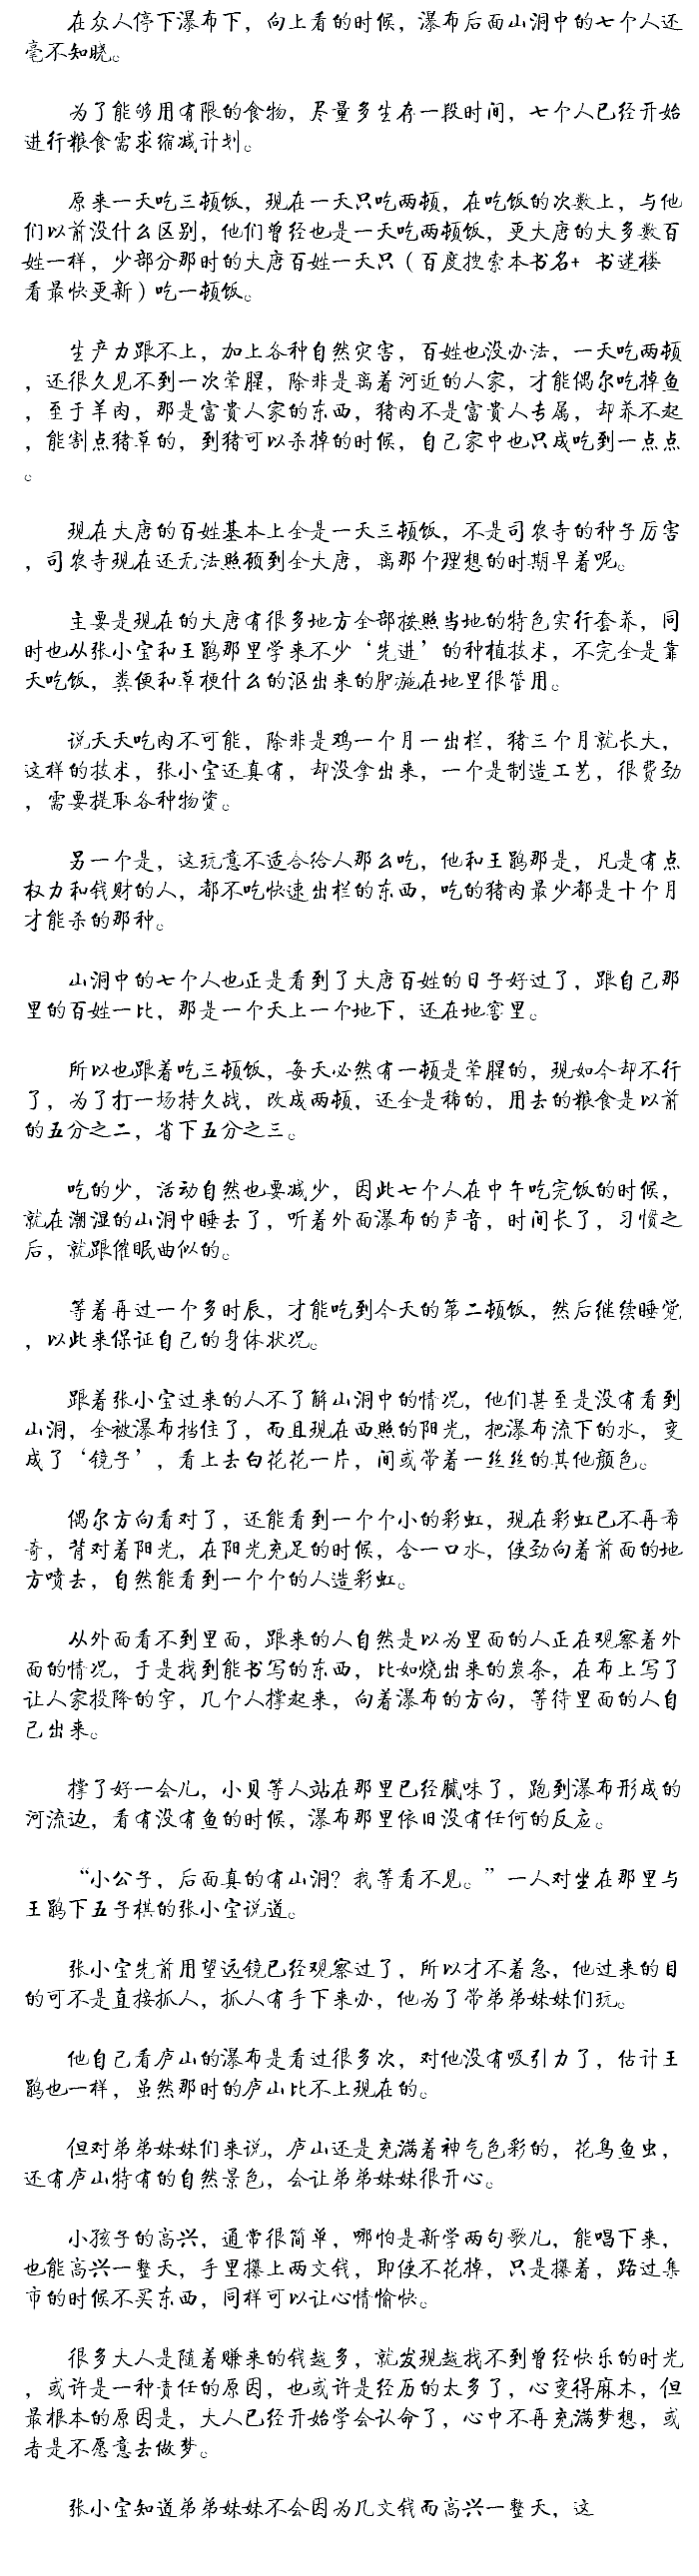 在众人停下瀑布下，向上看的时候，瀑布后面山洞中的七个人还
毫不知晓。
为了能够用有限的食物，尽量多生存一段时间，七个人已经开始
进行粮食需求缩减计划。
原来一天吃三顿饭，现在一天只吃两顿，在吃饭的次数上，与他
们以前没什么区别，他们曾经也是一天吃两顿饭，更大唐的大多数百
姓一样，少部分那时的大唐百姓一天只（百度搜索本书名+ 书迷楼
看最快更新）吃一顿饭。
生产力跟不上，加上各种自然灾害，百姓也没办法，一天吃两顿
，还很久见不到一次荤腥，除非是离着河近的人家，才能偶尔吃掉鱼
，至于羊肉，那是富贵人家的东西，猪肉不是富贵人专属，却养不起
，能割点猪草的，到猪可以杀掉的时候，自己家中也只成吃到一点点
。
现在大唐的百姓基本上全是一天三顿饭，不是司农寺的种子厉害
，司农寺现在还无法照顾到全大唐，离那个理想的时期早着呢。
主要是现在的大唐有很多地方全部按照当地的特色实行套养，同
时也从张小宝和王鹃那里学来不少‘先进’的种植技术，不完全是靠
天吃饭，粪便和草梗什么的沤出来的肥施在地里很管用。
说天天吃肉不可能，除非是鸡一个月一出栏，猪三个月就长大，
这样的技术，张小宝还真有，却没拿出来，一个是制造工艺，很费劲
，需要提取各种物资。
另一个是，这玩意不适合给人那么吃，他和王鹃那是，凡是有点
权力和钱财的人，都不吃快速出栏的东西，吃的猪肉最少都是十个月
才能杀的那种。
山洞中的七个人也正是看到了大唐百姓的日子好过了，跟自己那
里的百姓一比，那是一个天上一个地下，还在地窖里。
所以也跟着吃三顿饭，每天必然有一顿是荤腥的，现如今却不行
了，为了打一场持久战，改成两顿，还全是稀的，用去的粮食是以前
的五分之二，省下五分之三。
吃的少，活动自然也要减少，因此七个人在中午吃完饭的时候，
就在潮湿的山洞中睡去了，听着外面瀑布的声音，时间长了，习惯之
后，就跟催眠曲似的。
等着再过一个多时辰，才能吃到今天的第二顿饭，然后继续睡觉
，以此来保证自己的身体状况。
跟着张小宝过来的人不了解山洞中的情况，他们甚至是没有看到
山洞，全被瀑布挡住了，而且现在西照的阳光，把瀑布流下的水，变
成了‘镜子’，看上去白花花一片，间或带着一丝丝的其他颜色。
偶尔方向看对了，还能看到一个个小的彩虹，现在彩虹已不再希
奇，背对着阳光，在阳光充足的时候，含一口水，使劲向着前面的地
方喷去，自然能看到一个个的人造彩虹。
从外面看不到里面，跟来的人自然是以为里面的人正在观察着外
面的情况，于是找到能书写的东西，比如烧出来的炭条，在布上写了
让人家投降的字，几个人撑起来，向着瀑布的方向，等待里面的人自
己出来。
撑了好一会儿，小贝等人站在那里已经腻味了，跑到瀑布形成的
河流边，看有没有鱼的时候，瀑布那里依旧没有任何的反应。
“小公子，后面真的有山洞？我等看不见。”一人对坐在那里与
王鹃下五子棋的张小宝说道。
张小宝先前用望远镜已经观察过了，所以才不着急，他过来的目
的可不是直接抓人，抓人有手下来办，他为了带弟弟妹妹们玩。
他自己看庐山的瀑布是看过很多次，对他没有吸引力了，估计王
鹃也一样，虽然那时的庐山比不上现在的。
但对弟弟妹妹们来说，庐山还是充满着神气色彩的，花鸟鱼虫，
还有庐山特有的自然景色，会让弟弟妹妹很开心。
小孩子的高兴，通常很简单，哪怕是新学两句歌儿，能唱下来，
也能高兴一整天，手里攥上两文钱，即使不花掉，只是攥着，路过集
市的时候不买东西，同样可以让心情愉快。
很多大人是随着赚来的钱越多，就发现越找不到曾经快乐的时光
，或许是一种责任的原因，也或许是经历的太多了，心变得麻木，但
最根本的原因是，大人已经开始学会认命了，心中不再充满梦想，或
者是不愿意去做梦。
张小宝知道弟弟妹妹不会因为几文钱而高兴一整天，这